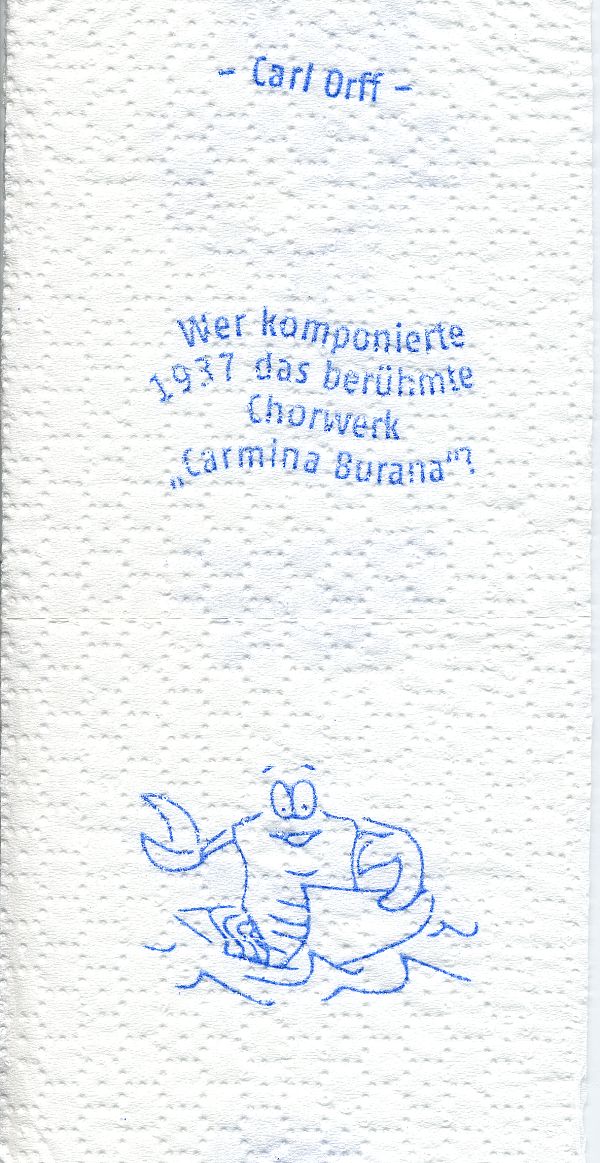 - Carl Orff -
Wer komponierte
1937 das berühmte
Chorwerk
„Carmina Burana“?